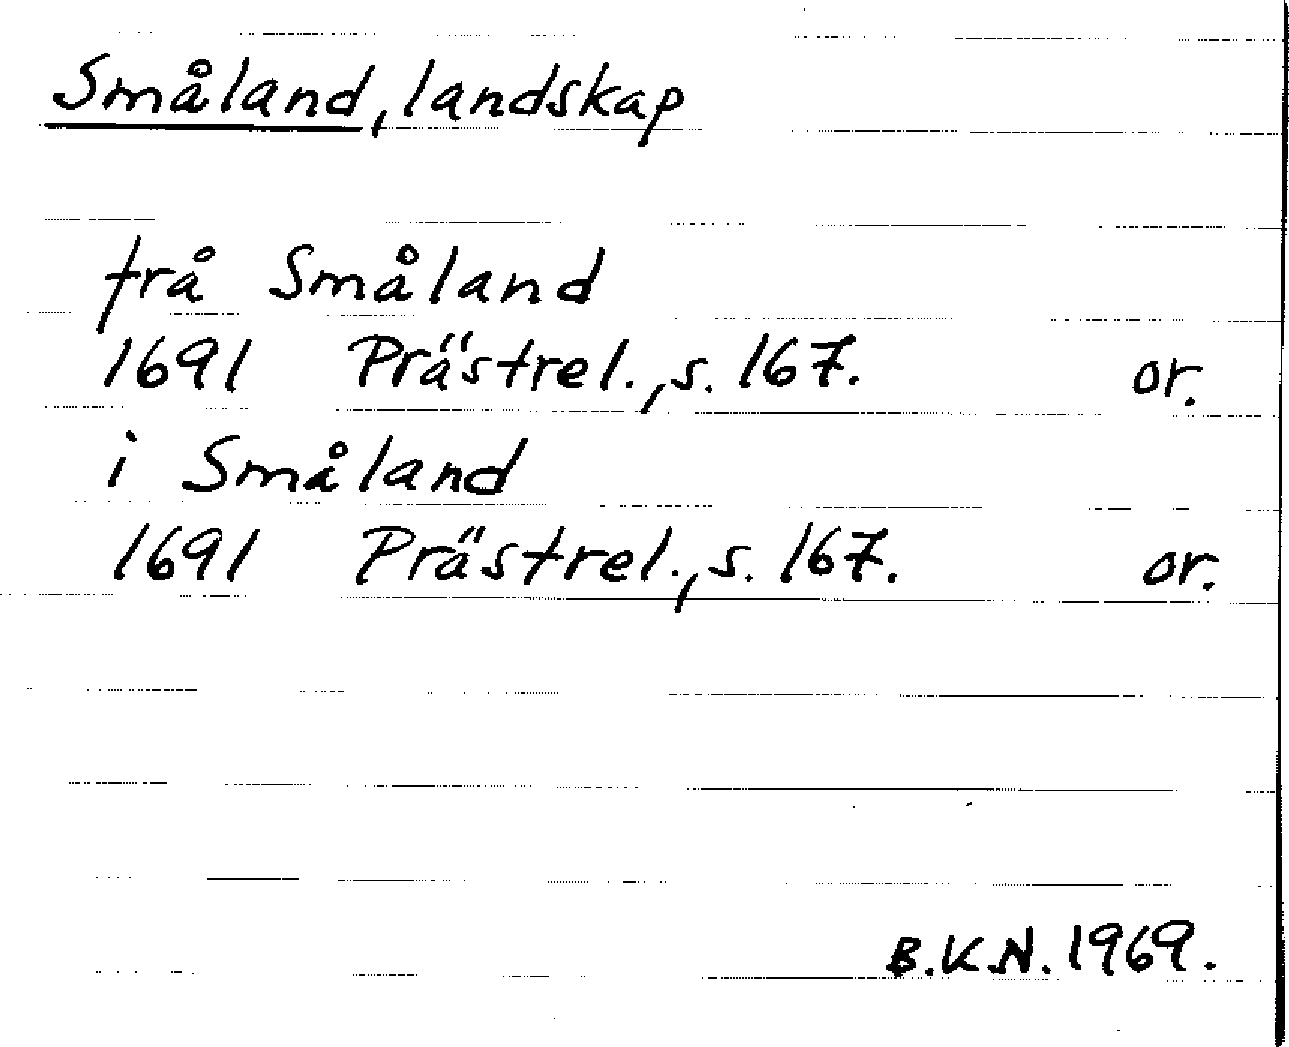 Småland, landskap
frå Småland
1691 Prästrel., s. 167. or.
i Småland
1691 Prästrel., s. 167. or.
B.K.N. 1969.